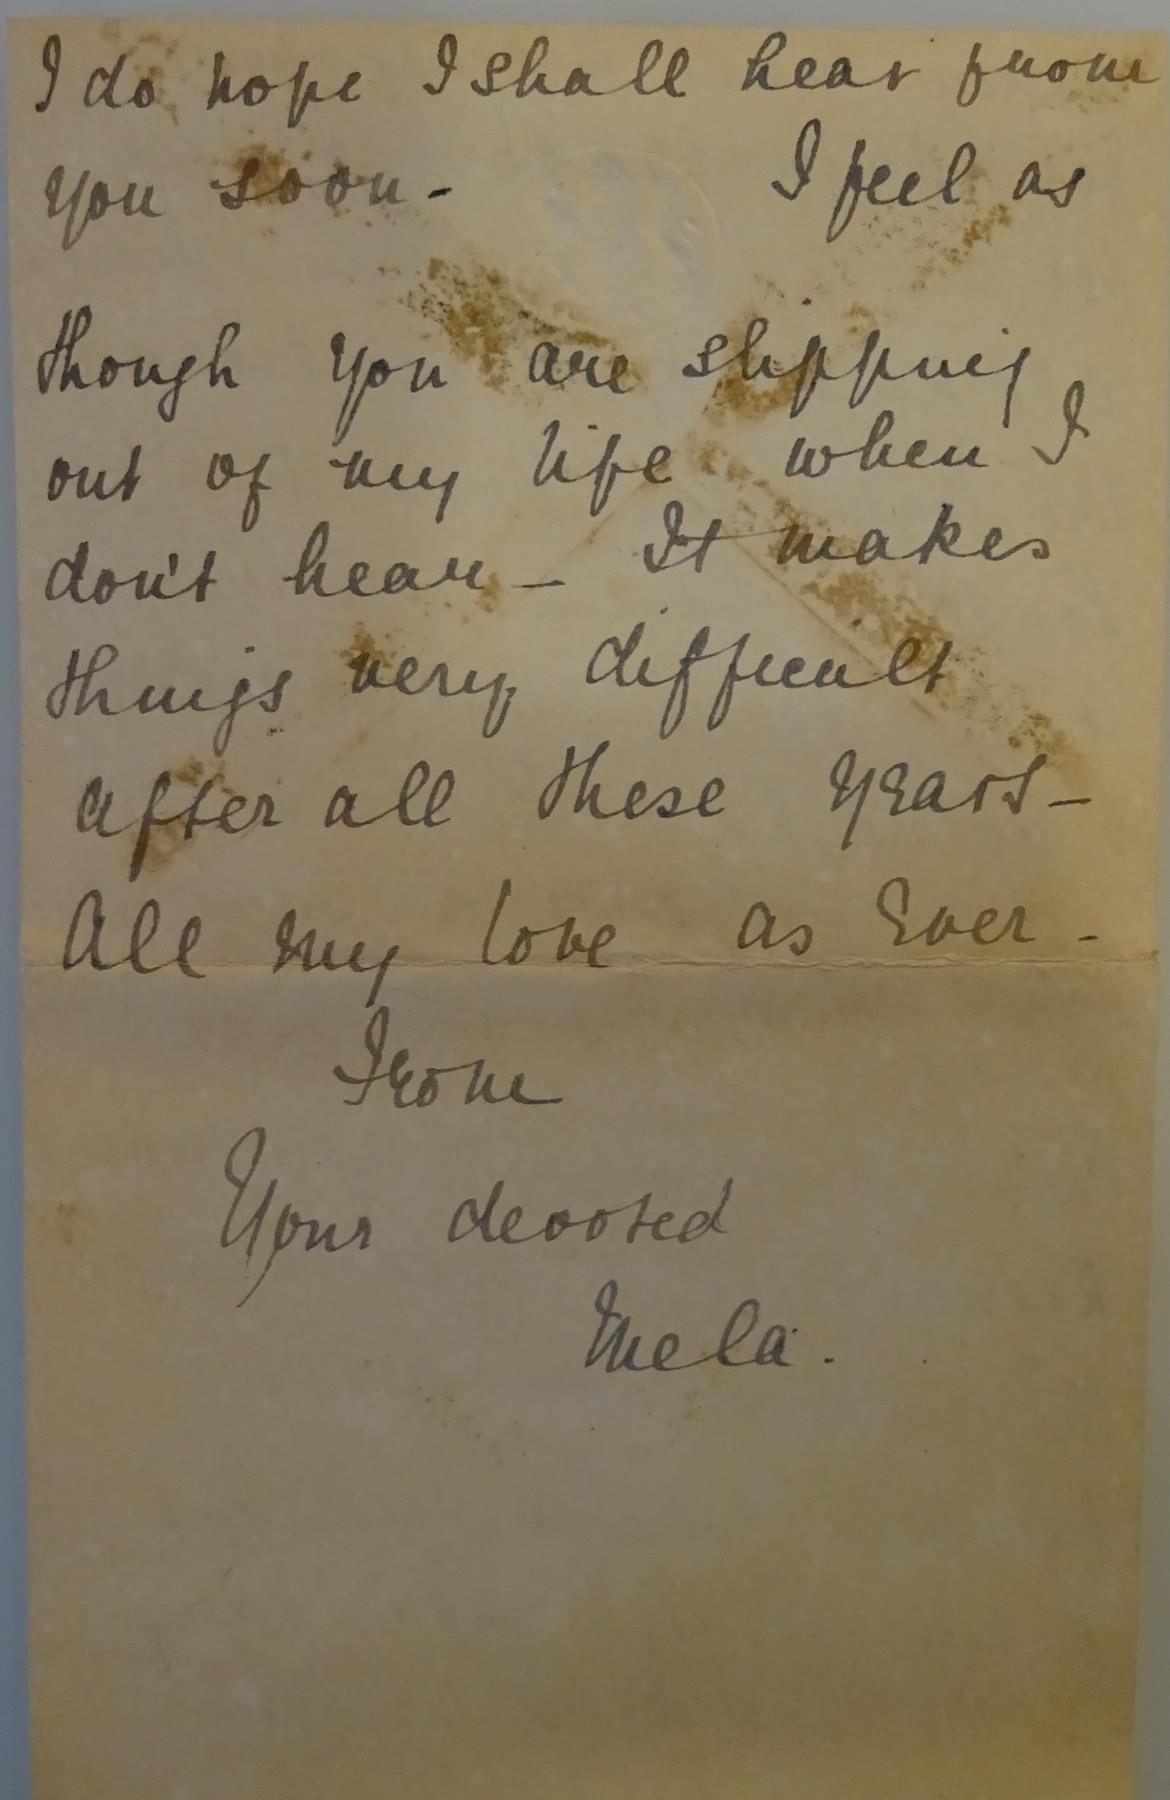 I do hope I shall hear from
you soon - I feel as
though you are slipping
out of my life when I
don't hear - It makes
things very difficult
after all these years -
All my love as Ever -
From
Your devoted
Mela.